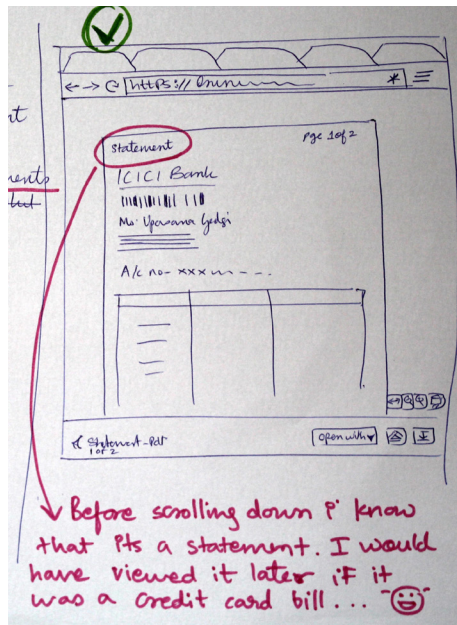 nt
ments
but
https://
Statement
Pge 1 of 2
ICICI Bank
Ms. Upasana Gedgi
A/c no- xxx
Statement-Pdf
1 of 2
Open with
Before scrolling down i know
that its a statement. I would
have viewed it later if it
was a credit card bill...